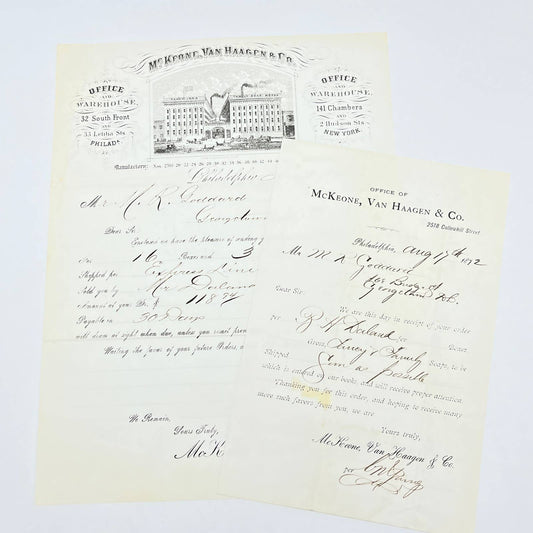 McKeone, Van Haagen & Co.
OFFICE
AND
WAREHOUSE,
32 South Front
AND
35 Letitia Sts
PHILADa
OFFICE
AND
WAREHOUSE,
141 Chambers
AND
2 Hudson Sts
NEW YORK.
Manufactory:
Philadelphia
Mr H. R. Goddard
Georgetown
Dear Sir
16 Boxes and 3
Shipped per Express Line
Sold you by Mr Deland
amount as you Dr. $ 118 74
Payable in 30 Days
will draw at sight when due, unless you remit
Waiting the favor of your future Orders,
We Remain,
Yours Truly,
McK
OFFICE OF
McKeone, Van Haagen & Co.
2518 Callowhill Street
Philadelphia, Aug 17th 1892
Mr M R Goddard
Georgetown D.C.
Dear Sir:
We are this day in receipt of your order
for Boxes
Gross, Fancy & Family Soaps, to be
Shipped Soon as possible
which is entered on our books, and will receive proper attention.
Thanking you for this order, and hoping to receive many
more such favors from you, we are
Yours truly,
McKeone, Van Haagen & Co.
Per